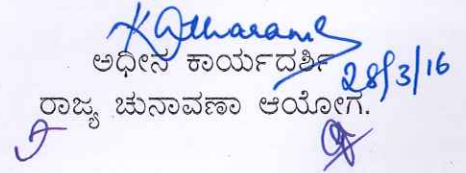 ಅಧೀನ ಕಾರ್ಯದರ್ಶಿ
28/3/16
ರಾಜ್ಯ ಚುನಾವಣಾ ಆಯೋಗ.